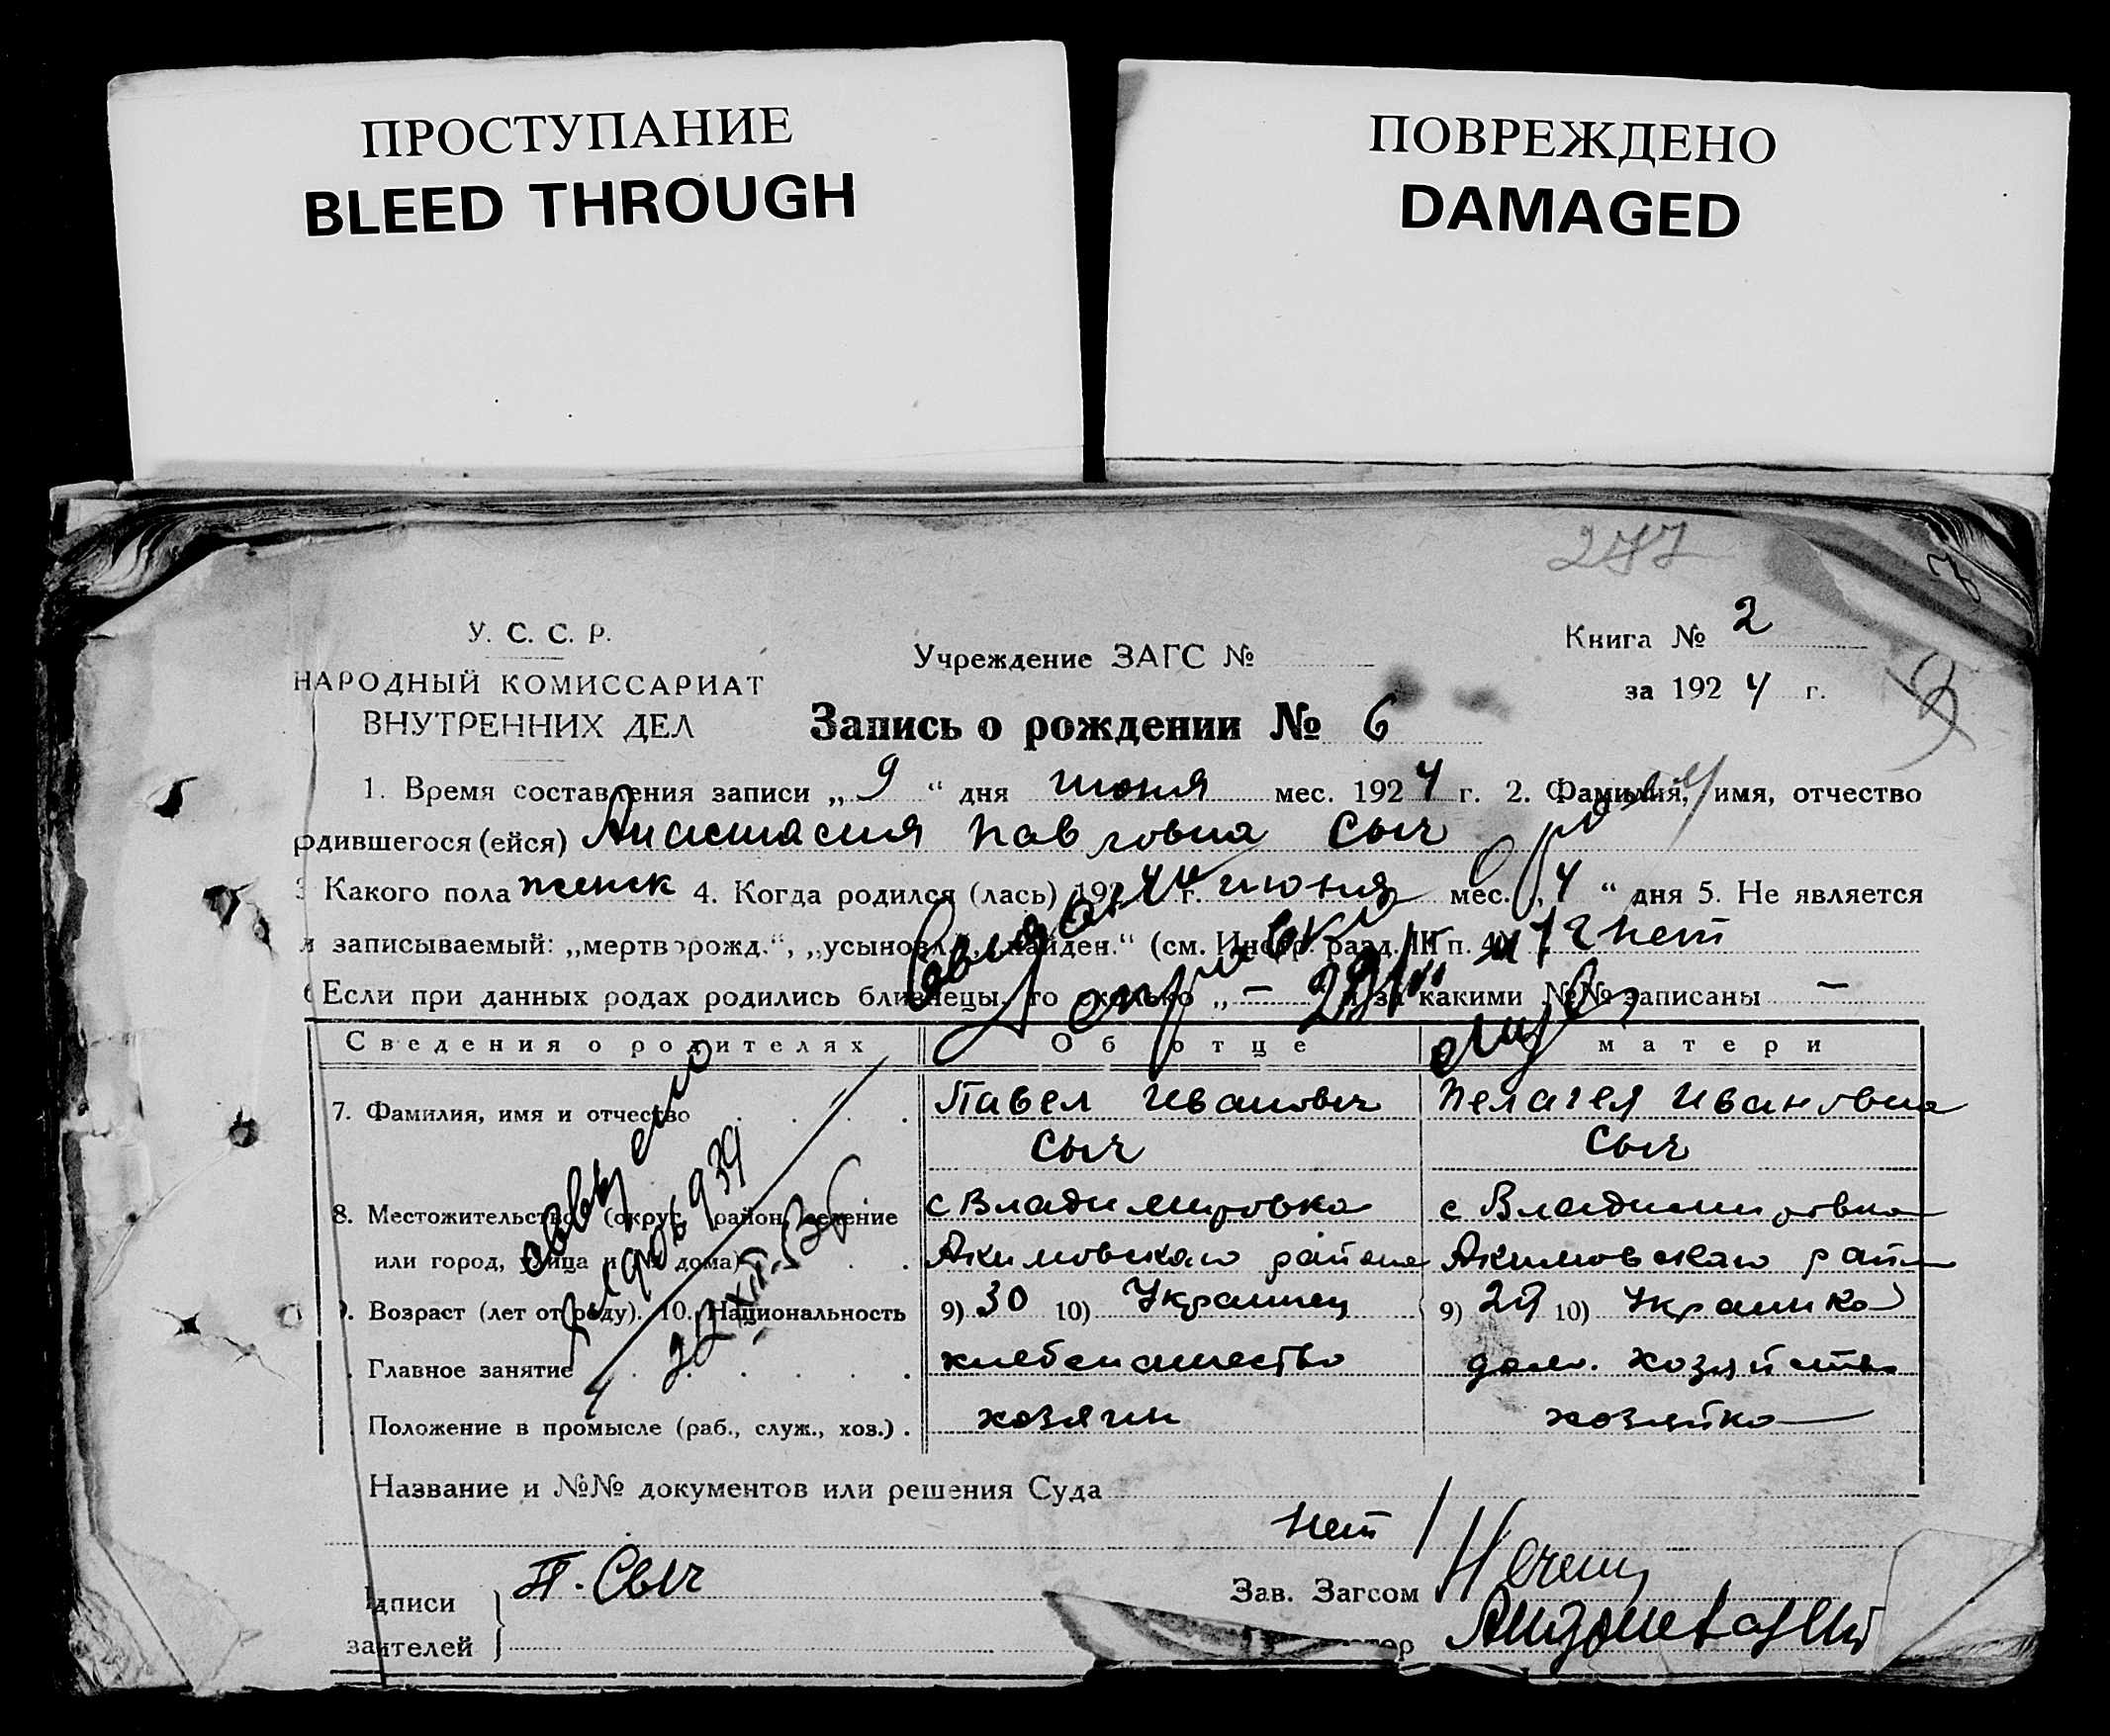 ПРОСТУПАНИЕ
BLEED THROUGH
ПОВРЕЖДЕНО
DAMAGED
277
У. С. С. Р.
НАРОДНЫЙ КОМИССАРИАТ
ВНУТРЕННИХ ДЕЛ
Учреждение ЗАГС №
Книга № 2
за 1924 г.
Запись о рождении № 6
1. Время составления записи „9“ дня июня мес. 1924 г. 2. Фамилия, имя, отчество
родившегося (ейся) Анастасия Павловна Сыч
3 Какого пола женск 4. Когда родился (лась) 1924 г. июня мес. „4“ дня 5. Не является
и записываемый: „мертворожд.“, „усыновл.“, „найден.“ (см. Инстр. разд. III п. 4) нет
6 Если при данных родах родились близнецы, то сколько „ — и за какими №№ записаны —
Сведения о родителях Об отце матери
7. Фамилия, имя и отчество Павел Иванович Пелагея Ивановна
Сыч Сыч
8. Местожительство (округ, район, селение с Владимировка с Владимировка
или город, улица и № дома) Акимовскаго района Акимовскаго райо
9. Возраст (лет от роду). 10. Национальность 9) 30 10) Украинец 9) 29 10) Украинка
Главное занятие хлебопашество дом. хозяйство
Положение в промысле (раб., служ., хоз.) хозяин хозяйка
Название и №№ документов или решения Суда
нет
дписи
заятелей
П. Сыч
Зав. Загсом